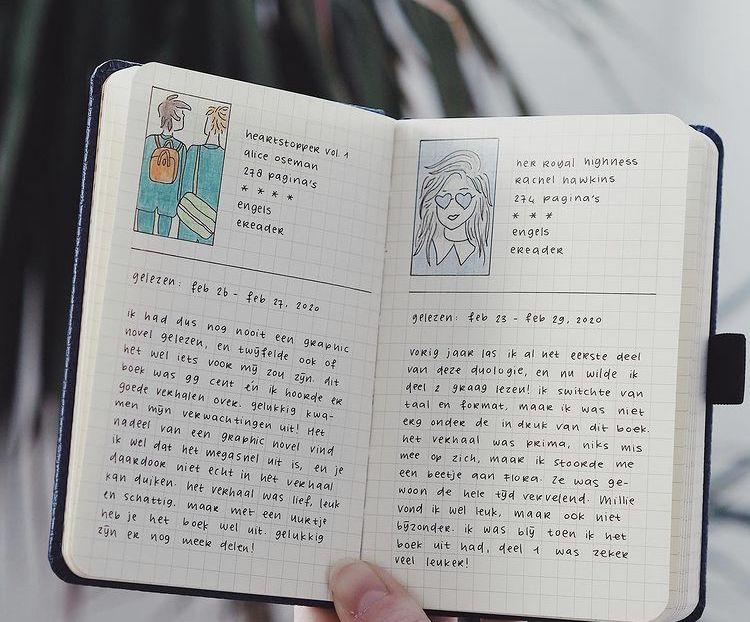 heartstopper vol. 1
alice oseman
278 pagina's
* * * *
engels
ereader
gelezen: feb 26 - feb 27, 2020
ik had dus nog nooit een graphic
novel gelezen, en twijfelde ook of
het wel iets voor mij zou zijn. dit
boek was 99 cent én ik hoorde er
goede verhalen over. gelukkig kwa-
men mijn verwachtingen uit! Het
nadeel van een graphic novel vind
ik wel dat het megasnel uit is, en je
daardoor niet echt in het verhaal
kan duiken. het verhaal was lief, leuk
en schattig. maar met een uurtje
heb je het boek wel uit. gelukkig
zijn er nog meer delen!
her royal highness
rachel hawkins
274 pagina's
* * *
engels
ereader
gelezen: feb 23 - feb 29, 2020
vorig jaar las ik al het eerste deel
van deze duologie, en nu wilde ik
deel 2 graag lezen! ik switchte van
taal en format, maar ik was niet
erg onder de indruk van dit boek.
het verhaal was prima, niks mis
mee op zich, maar ik stoorde me
een beetje aan Flora. Ze was ge-
woon de hele tijd vervelend. Millie
vond ik wel leuk, maar ook niet
bijzonder. ik was blij toen ik het
boek uit had, deel 1 was zeker
veel leuker!